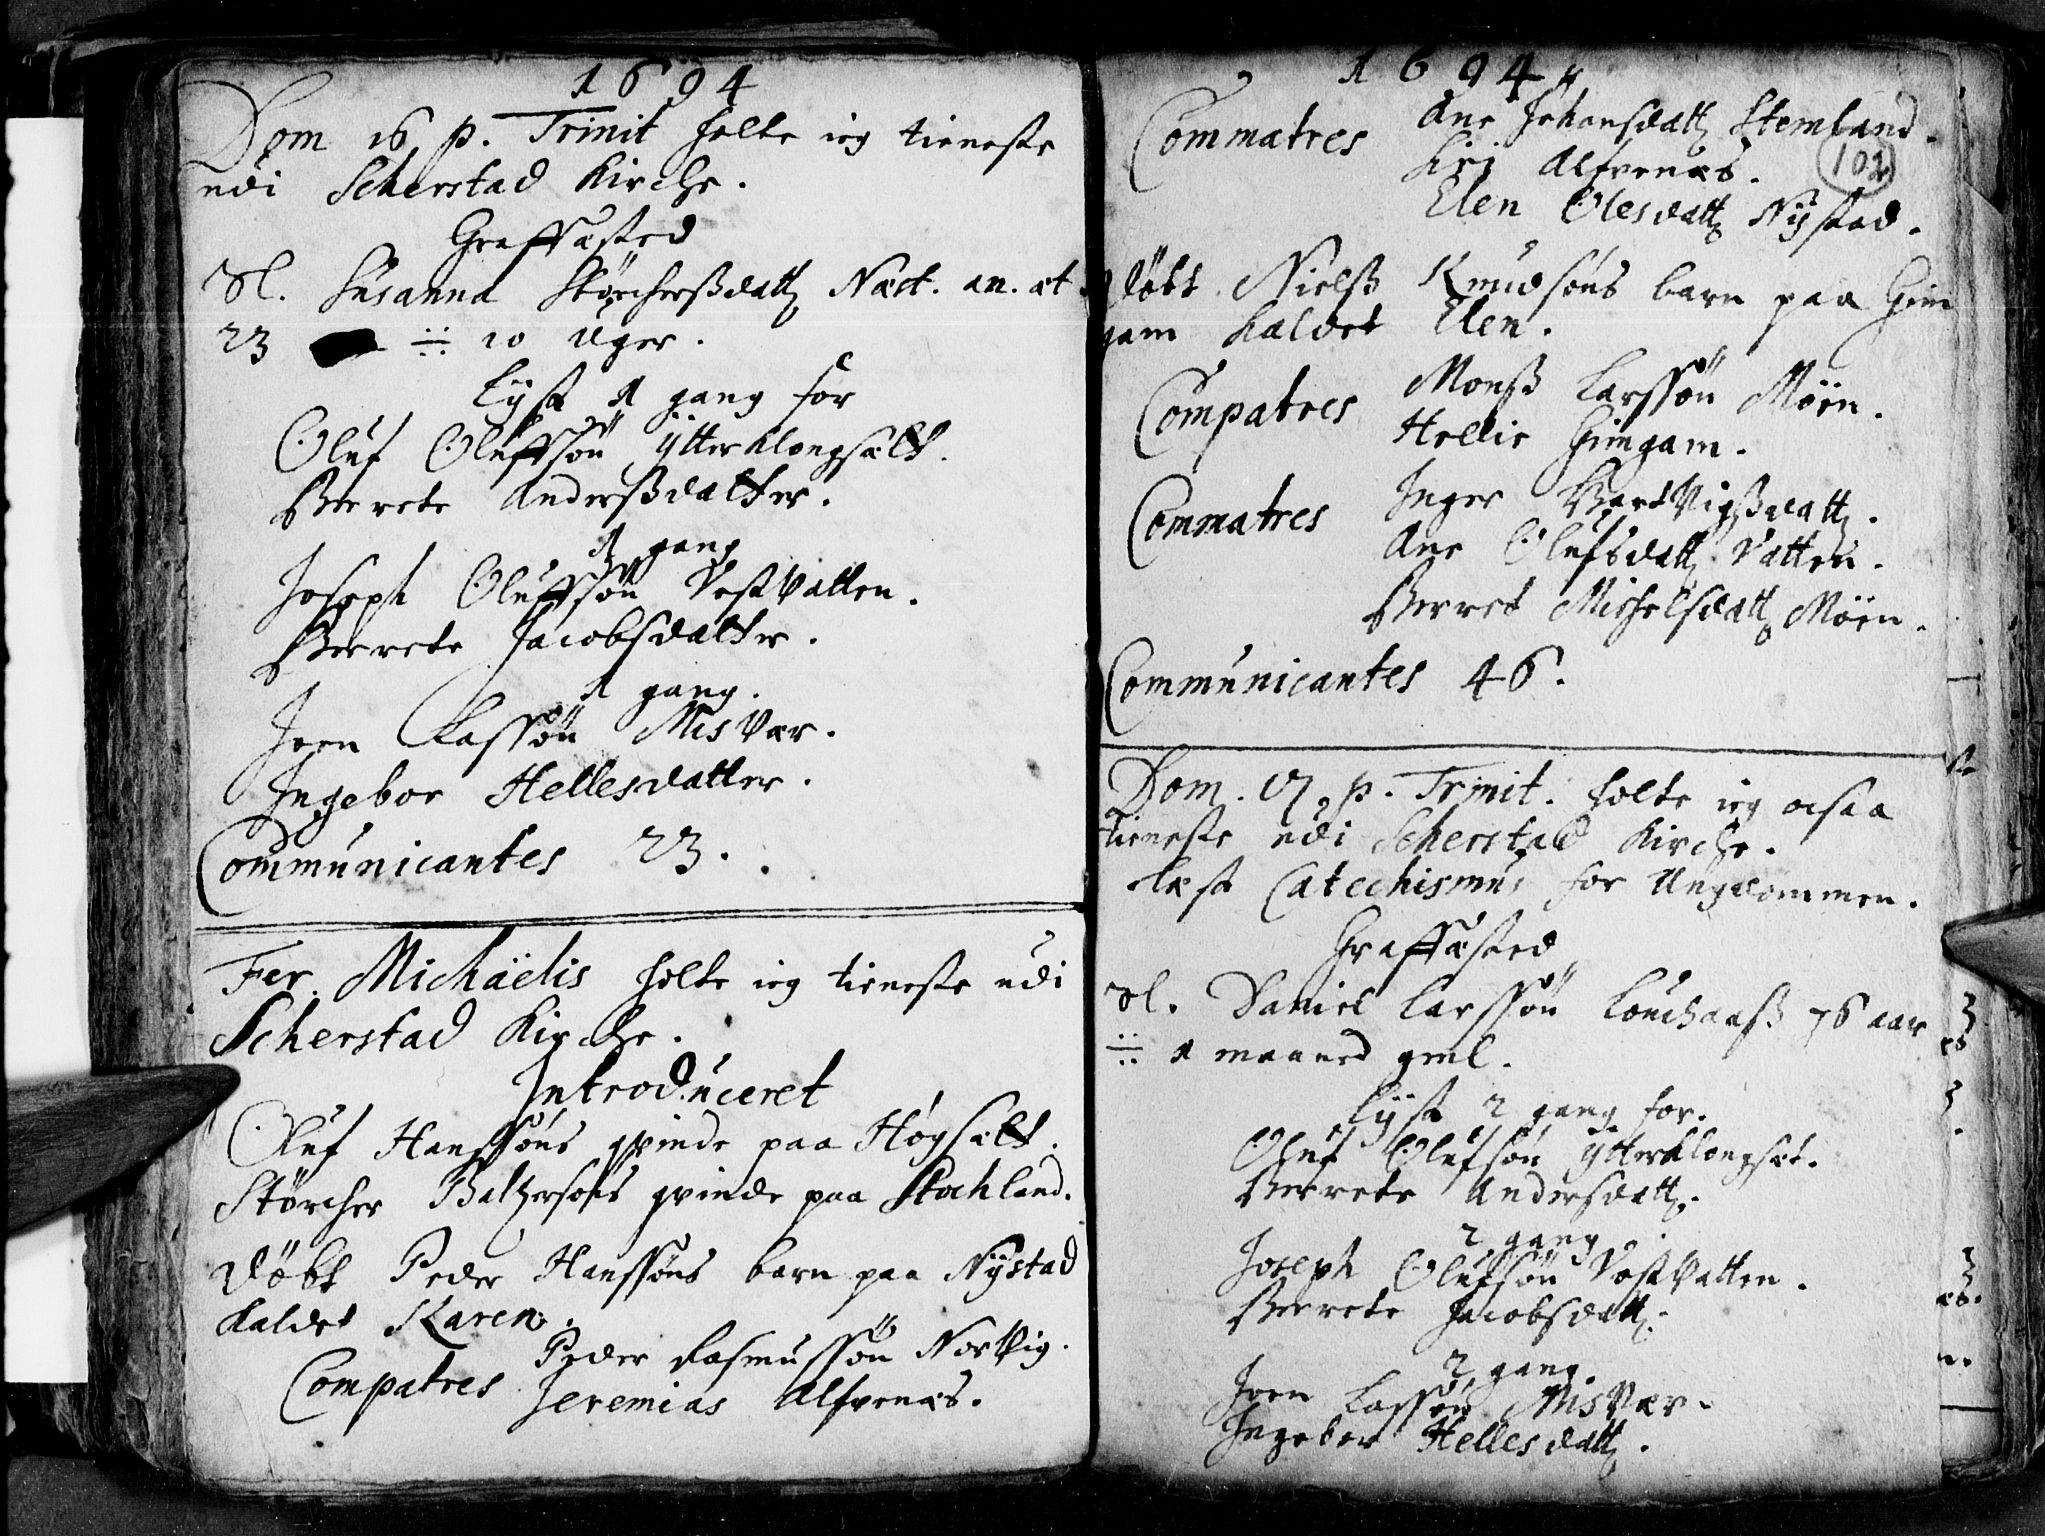 1694
Dom 16 p. Trinit holte ieg tieneste
udi Scherstad Kirche.
Graffæsted
Sl. Susanna Størchersßdatt Næst. an. æt.
23 ÷ 10 Uger.
Lyst 1 gang for
Oluf Oluffsøn Ytterklongsælt.
Berrete Andersßdatter.
1 gang
Joseph Oluffsøn Vestvatten.
Berrete Jacobsdatter.
1 gang.
Joen Lassøn Misvær.
Ingebor Hellesdatter.
Communicantes 23.
Fer. Michaëlis holte ieg tieneste udi
Scherstad Kirche.
Introduceret
Oluf Hanssøns qvinde paa Høgsælt.
Størcher Baltzersøns qvinde paa Stochland.
Døbt Peder Hanssøns barn paa Nystad
kaldet Karen.
Compatres Peder Rasmussøn Norvig.
Jeremias Alfvenæs.
1694
Commatres Ane Johansdatt Stemland.
Siri Alfvenæs.
102
Elen Olesdatt Nystad.
Døbt Nielß Knudsøns barn paa Gim
gam kaldet Elen.
Compatres Monß Larssøn Möen.
Hellie Gimgam.
Commatres Inger Hartvigßdatt.
Ane Olufsdatt Vatten.
Berret Michelsdatt Möen.
Communicantes 46.
Dom. 17 p. Trinit. holte ieg ocsaa
tieneste udi Scherstad Kirche.
læst Catechismus for Ungdommen.
Graffæsted
Sl. Daniel Larssøn 76 aar
÷ 1 maaned gml.
Lyst 2 gang for.
Oluf Olufsøn Ytterklongsæt.
Berrete Andersdatt.
2 gang
Joseph Olufsøn Vestvatten.
Berrete Jacobsdatt.
2 gang.
Joen Lassøn Misvær.
Ingebor Hellesdatt.